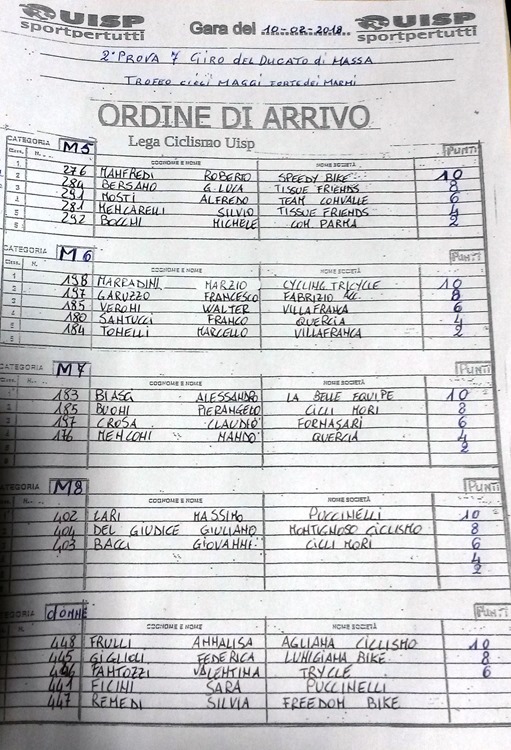 UISP sportpertutti Gara del 10-02-2018 UISP sportpertutti
2ª PROVA 7 GIRO DEL DUCATO di MASSA
TROFEO CICLI MAGGI FORTE dei MARMI
ORDINE DI ARRIVO
Lega Ciclismo Uisp
CATEGORIA M5 PUNTI
COGNOME E NOME NOME SOCIETÀ
1 276 MANFREDI ROBERTO SPEEDY BIKE 10
2 284 BERSANO G.LUCA TISSUE FRIENDS 8
3 291 MOSTI ALFREDO TEAM CONVALLE 6
4 281 MENCARELLI SILVIO TISSUE FRIENDS 4
5 292 BOCCHI MICHELE COM PARMA 2
CATEGORIA M6 PUNTI
COGNOME E NOME NOME SOCIETÀ
1 198 MARRADINI MARZIO CYCLING TRICYCLE 10
2 197 GARUZZO FRANCESCO FABRIZIO 8
3 185 VERONI WALTER VILLAFRANCA 6
4 180 SANTUCCI FRANCO QUERCIA 4
5 184 TONELLI MARCELLO VILLAFRANCA 2
CATEGORIA M7 PUNTI
COGNOME E NOME NOME SOCIETÀ
183 BIAGI ALESSANDRO LA BELLE EQUIPE 10
185 BUONI PIERANGELO CICLI MORI 8
197 CROSA CLAUDIO FORNASARI 6
176 MENCONI NANDO QUERCIA 4
2
CATEGORIA M8 PUNTI
COGNOME E NOME NOME SOCIETÀ
402 LARI MASSIMO PUCCINELLI 10
404 DEL GIUDICE GIULIANO MONTIGNOSO CICLISMO 8
403 BACCI GIOVANNI CICLI MORI 6
4
2
CATEGORIA donne PUNTI
COGNOME E NOME NOME SOCIETÀ
448 FRULLI ANNALISA AGLIANA CICLISMO 10
445 GIGLIOLI FEDERICA LUNIGIANA BIKE 8
FANTOZZI VALENTINA TRYCLE 6
441 FICINI SARA PUCCINELLI
447 REMEDI SILVIA FREEDOM BIKE